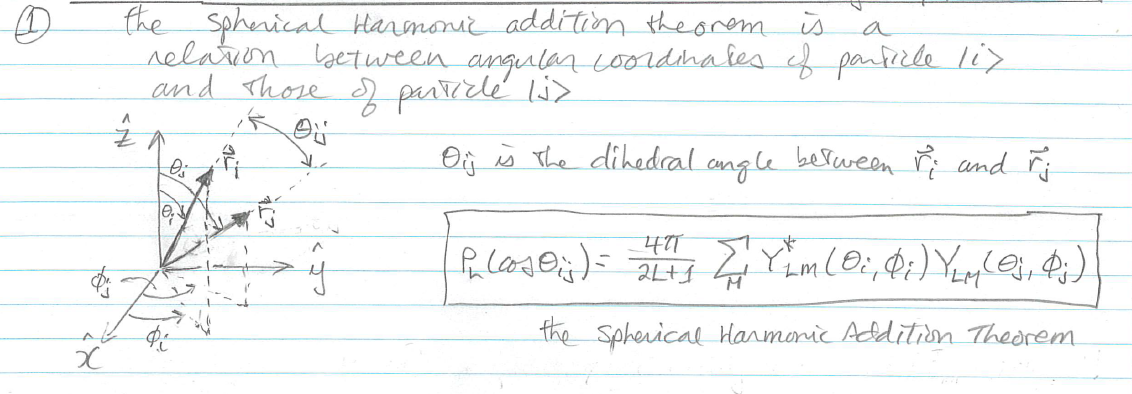 ① the spherical Harmonic addition theorem is a
relation between angular coordinates of particle |i>
and those of particle |j>
ẑ θij
θj r⃗i
θi r⃗j
ŷ
ϕj
ϕi
x̂
θij is the dihedral angle between r⃗i and r⃗j
PL(cosθij) = 4π/(2L+1) ∑M Y*LM(θi, ϕi) YLM(θj, ϕj)
the Spherical Harmonic Addition Theorem